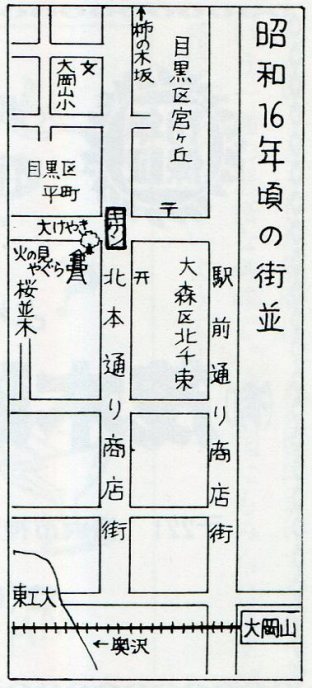 昭和16年頃の街並
↑柿の木坂
目黒区宮ヶ丘
文
大岡山小
目黒区
平町
〒
大けやき
火の見
やぐら
桜並木
北本通り商店街
大森区北千束
駅前通り商店街
東工大
←奥沢
大岡山